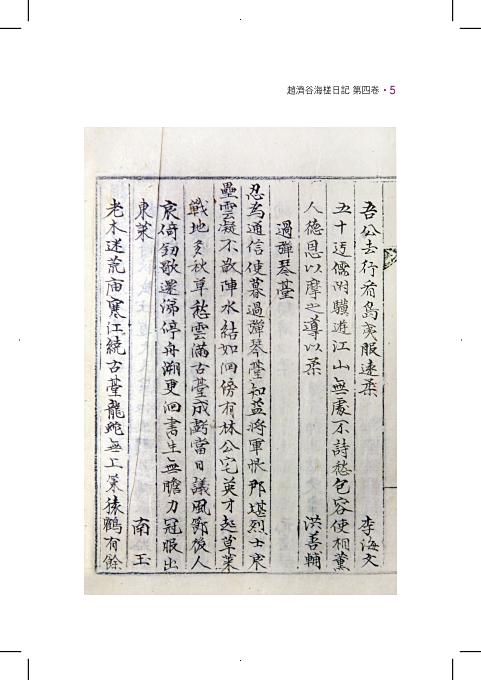 趙濟谷海槎日記 第四卷 • 5
吾公去行有島夷服遠柔 李海文
五十逕儒附驥遊江山無處不詩愁包容使相薰
人德恩以摩之導以柔 洪善輔
過彈琴臺
忍為通信使暮過彈琴臺知益將軍恨那堪烈士哀
壘雲凝不散陣水結如洄傍有林公宅英才起草萊
戰地多秋草愁雲滿古臺成虧當日議風鄧後人
哀倚釰歌還涕停舟溯更洄書生無膽力冠服出
東萊 南玉
老木迷荒庙寒江繞古臺龍蛇無上策猿鶴有餘